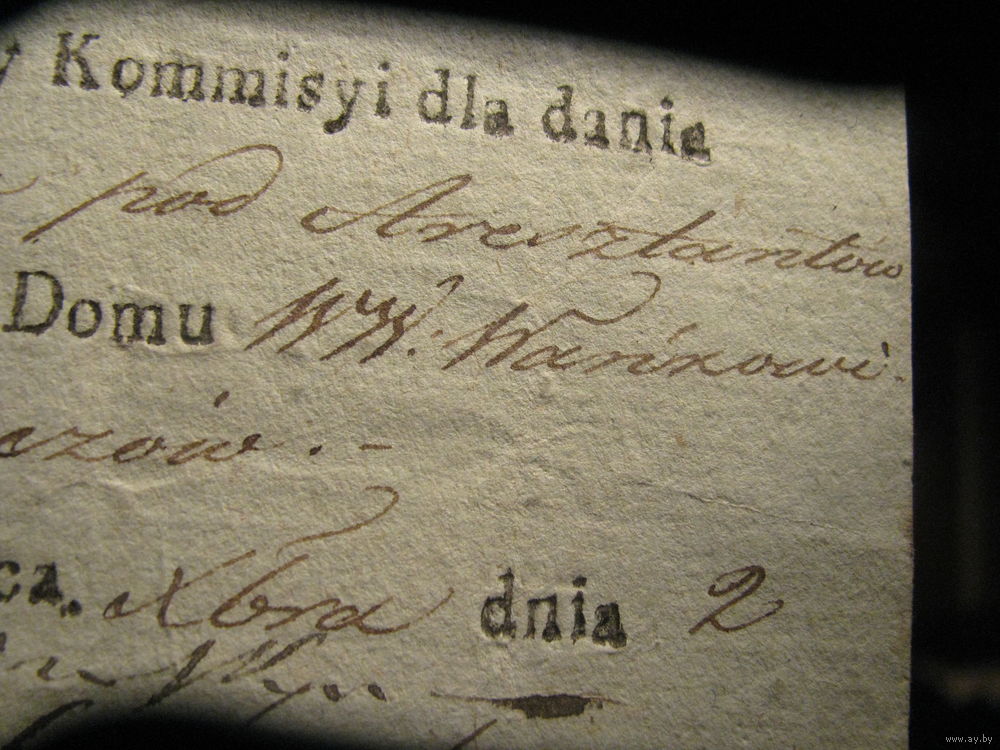 Kommisyi dla dania
pod Aresztantów
Domu WW. Wańkowi-
czów. -
ca. Xbra dnia 2
www.ay.by